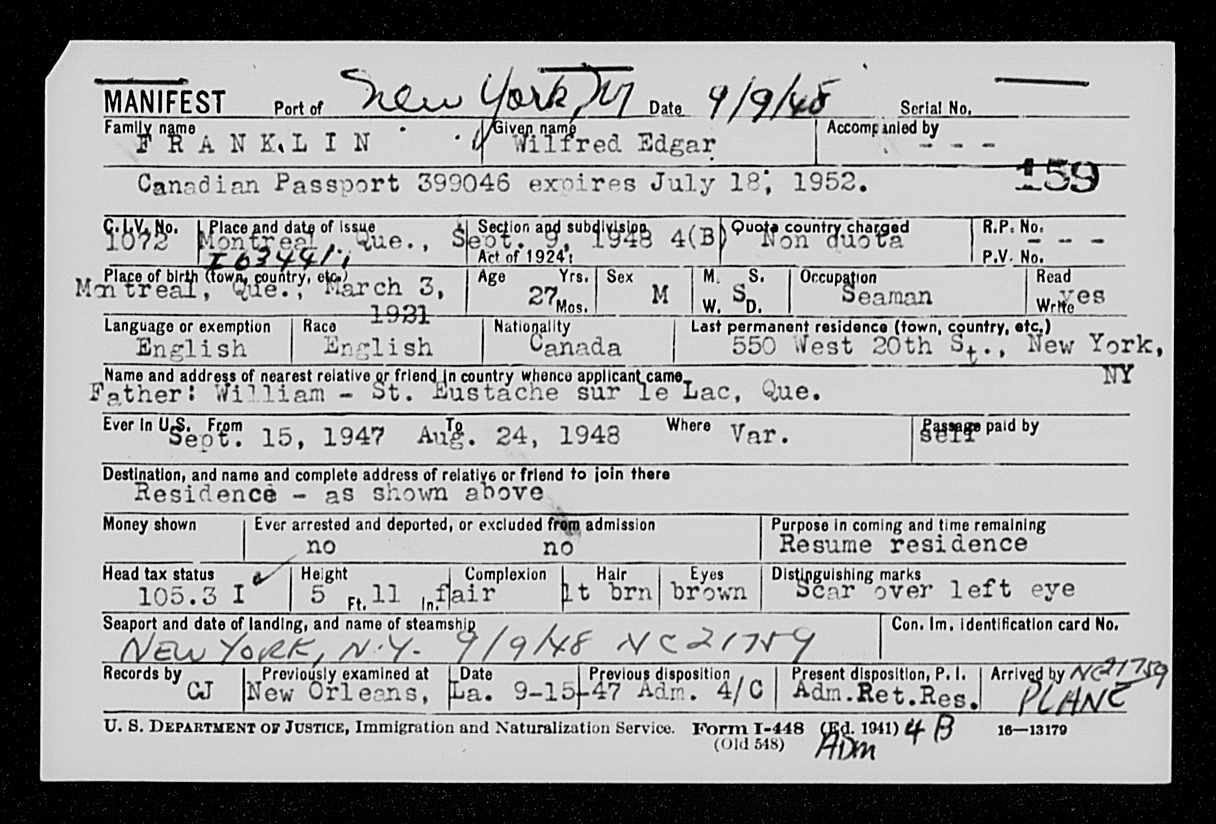 MANIFEST Port of New York, NY Date 9/9/48 Serial No.
Family name Given name Accompanied by
FRANKLIN Wilfred Edgar - - -
Canadian Passport 399046 expires July 18, 1952. 159
C.I.V. No. Place and date of issue Section and subdivision Quota country charged R.P. No.
1072 Montreal, Que., Sept. 9, 1948 4(B) Non quota - - -
I 63441 Act of 1924: P.V. No.
Place of birth (town, country, etc.) Age Yrs. Sex M. S. Occupation Read
Montreal, Que., March 3, 27 M S Seaman yes
1921 Mos. W. D. Write
Language or exemption Race Nationality Last permanent residence (town, country, etc.)
English English Canada 550 West 20th St., New York,
NY
Name and address of nearest relative or friend in country whence applicant came
Father: William - St. Eustache sur le Lac, Que.
Ever in U.S. From To Where Passage paid by
Sept. 15, 1947 Aug. 24, 1948 Var. self
Destination, and name and complete address of relative or friend to join there
Residence - as shown above
Money shown Ever arrested and deported, or excluded from admission Purpose in coming and time remaining
no no Resume residence
Head tax status Height Complexion Hair Eyes Distinguishing marks
105.3 I 5 Ft. 11 In. fair lt brn brown Scar over left eye
Seaport and date of landing, and name of steamship Con. Im. identification card No.
NEW YORK, N.Y. 9/9/48 NC21759
Records by Previously examined at Date Previous disposition Present disposition, P. I. Arrived by NC21759
CJ New Orleans, La. 9-15-47 Adm. 4/C Adm.Ret.Res. PLANE
U. S. DEPARTMENT OF JUSTICE, Immigration and Naturalization Service. Form I-448 (Ed. 1941) 4 B 16—13179
(Old 548) ADM